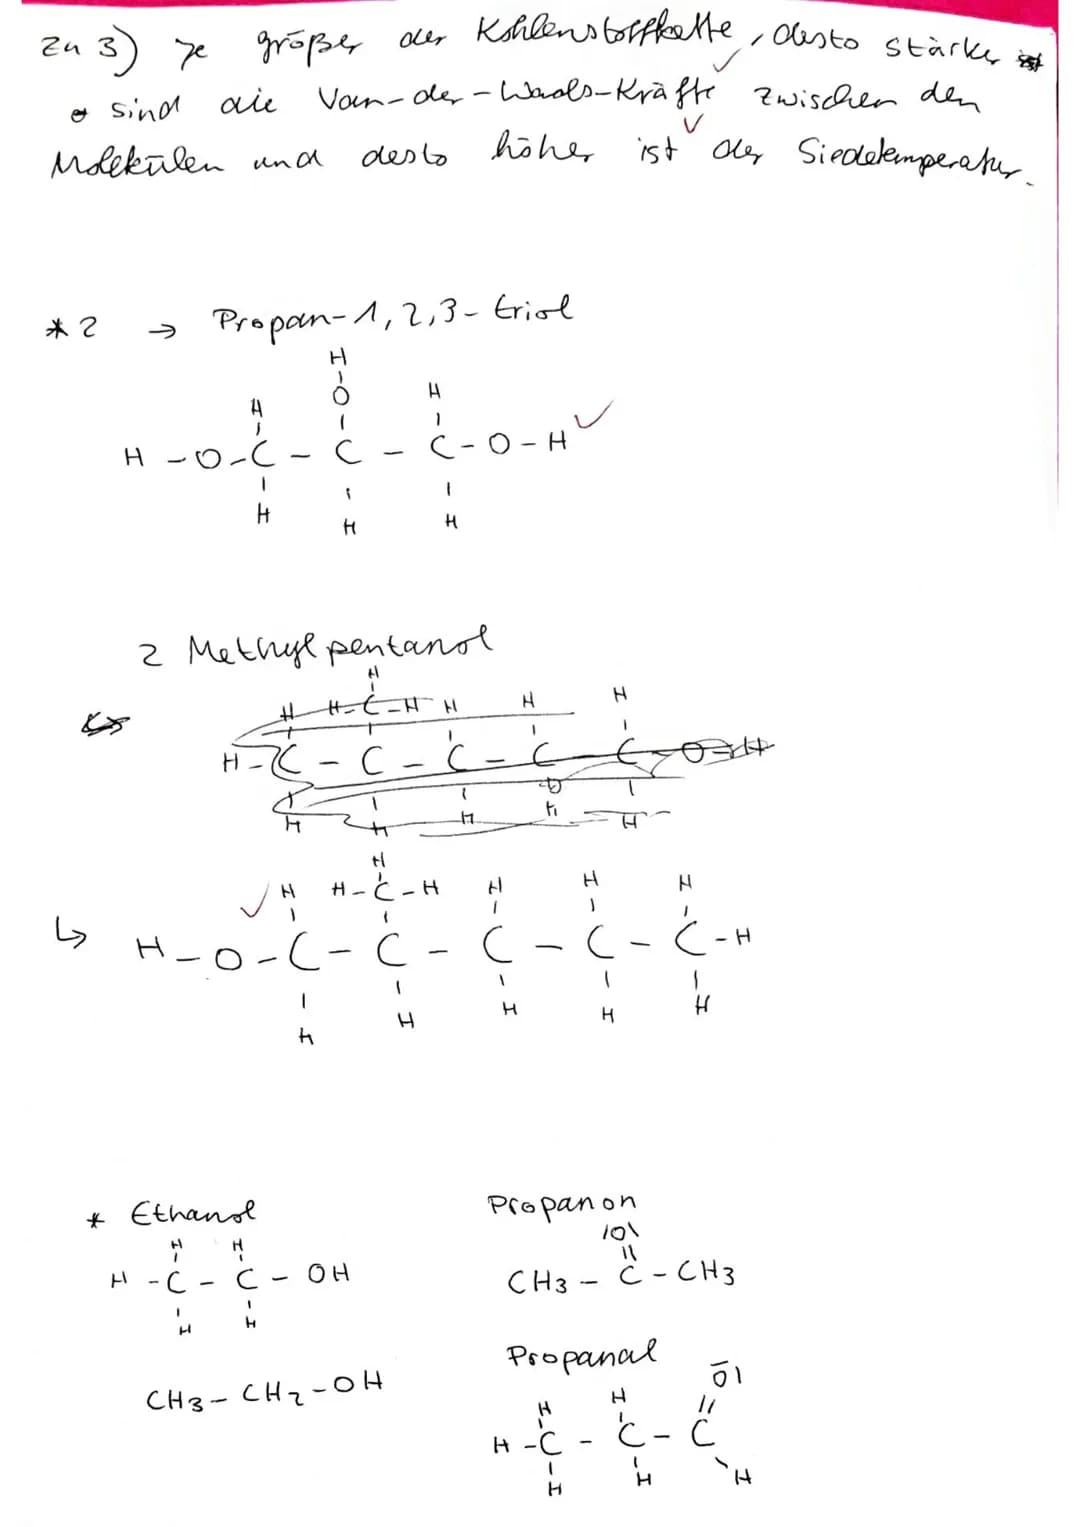 zu 3) Je größer der Kohlenstoffkette, desto stärker ist
sind die Van-der-Waals-Kräfte zwischen den
Molekülen und desto höher ist der Siedetemperatur.
* 2 → Propan-1,2,3-triol
H
H O H
H - O - C - C - C - O - H
H H H
2 Methylpentanol
H
H H-C-H H H H
H - C - C - C - C - C - O - H
H H H H H
H
H H-C-H H H H
↳ H - O - C - C - C - C - C - H
H H H H H
* Ethanol
H H
H - C - C - OH
H H
CH3 - CH2 - OH
Propanon
|O|
||
CH3 - C - CH3
Propanal
H H O|
H - C - C - C
H H H